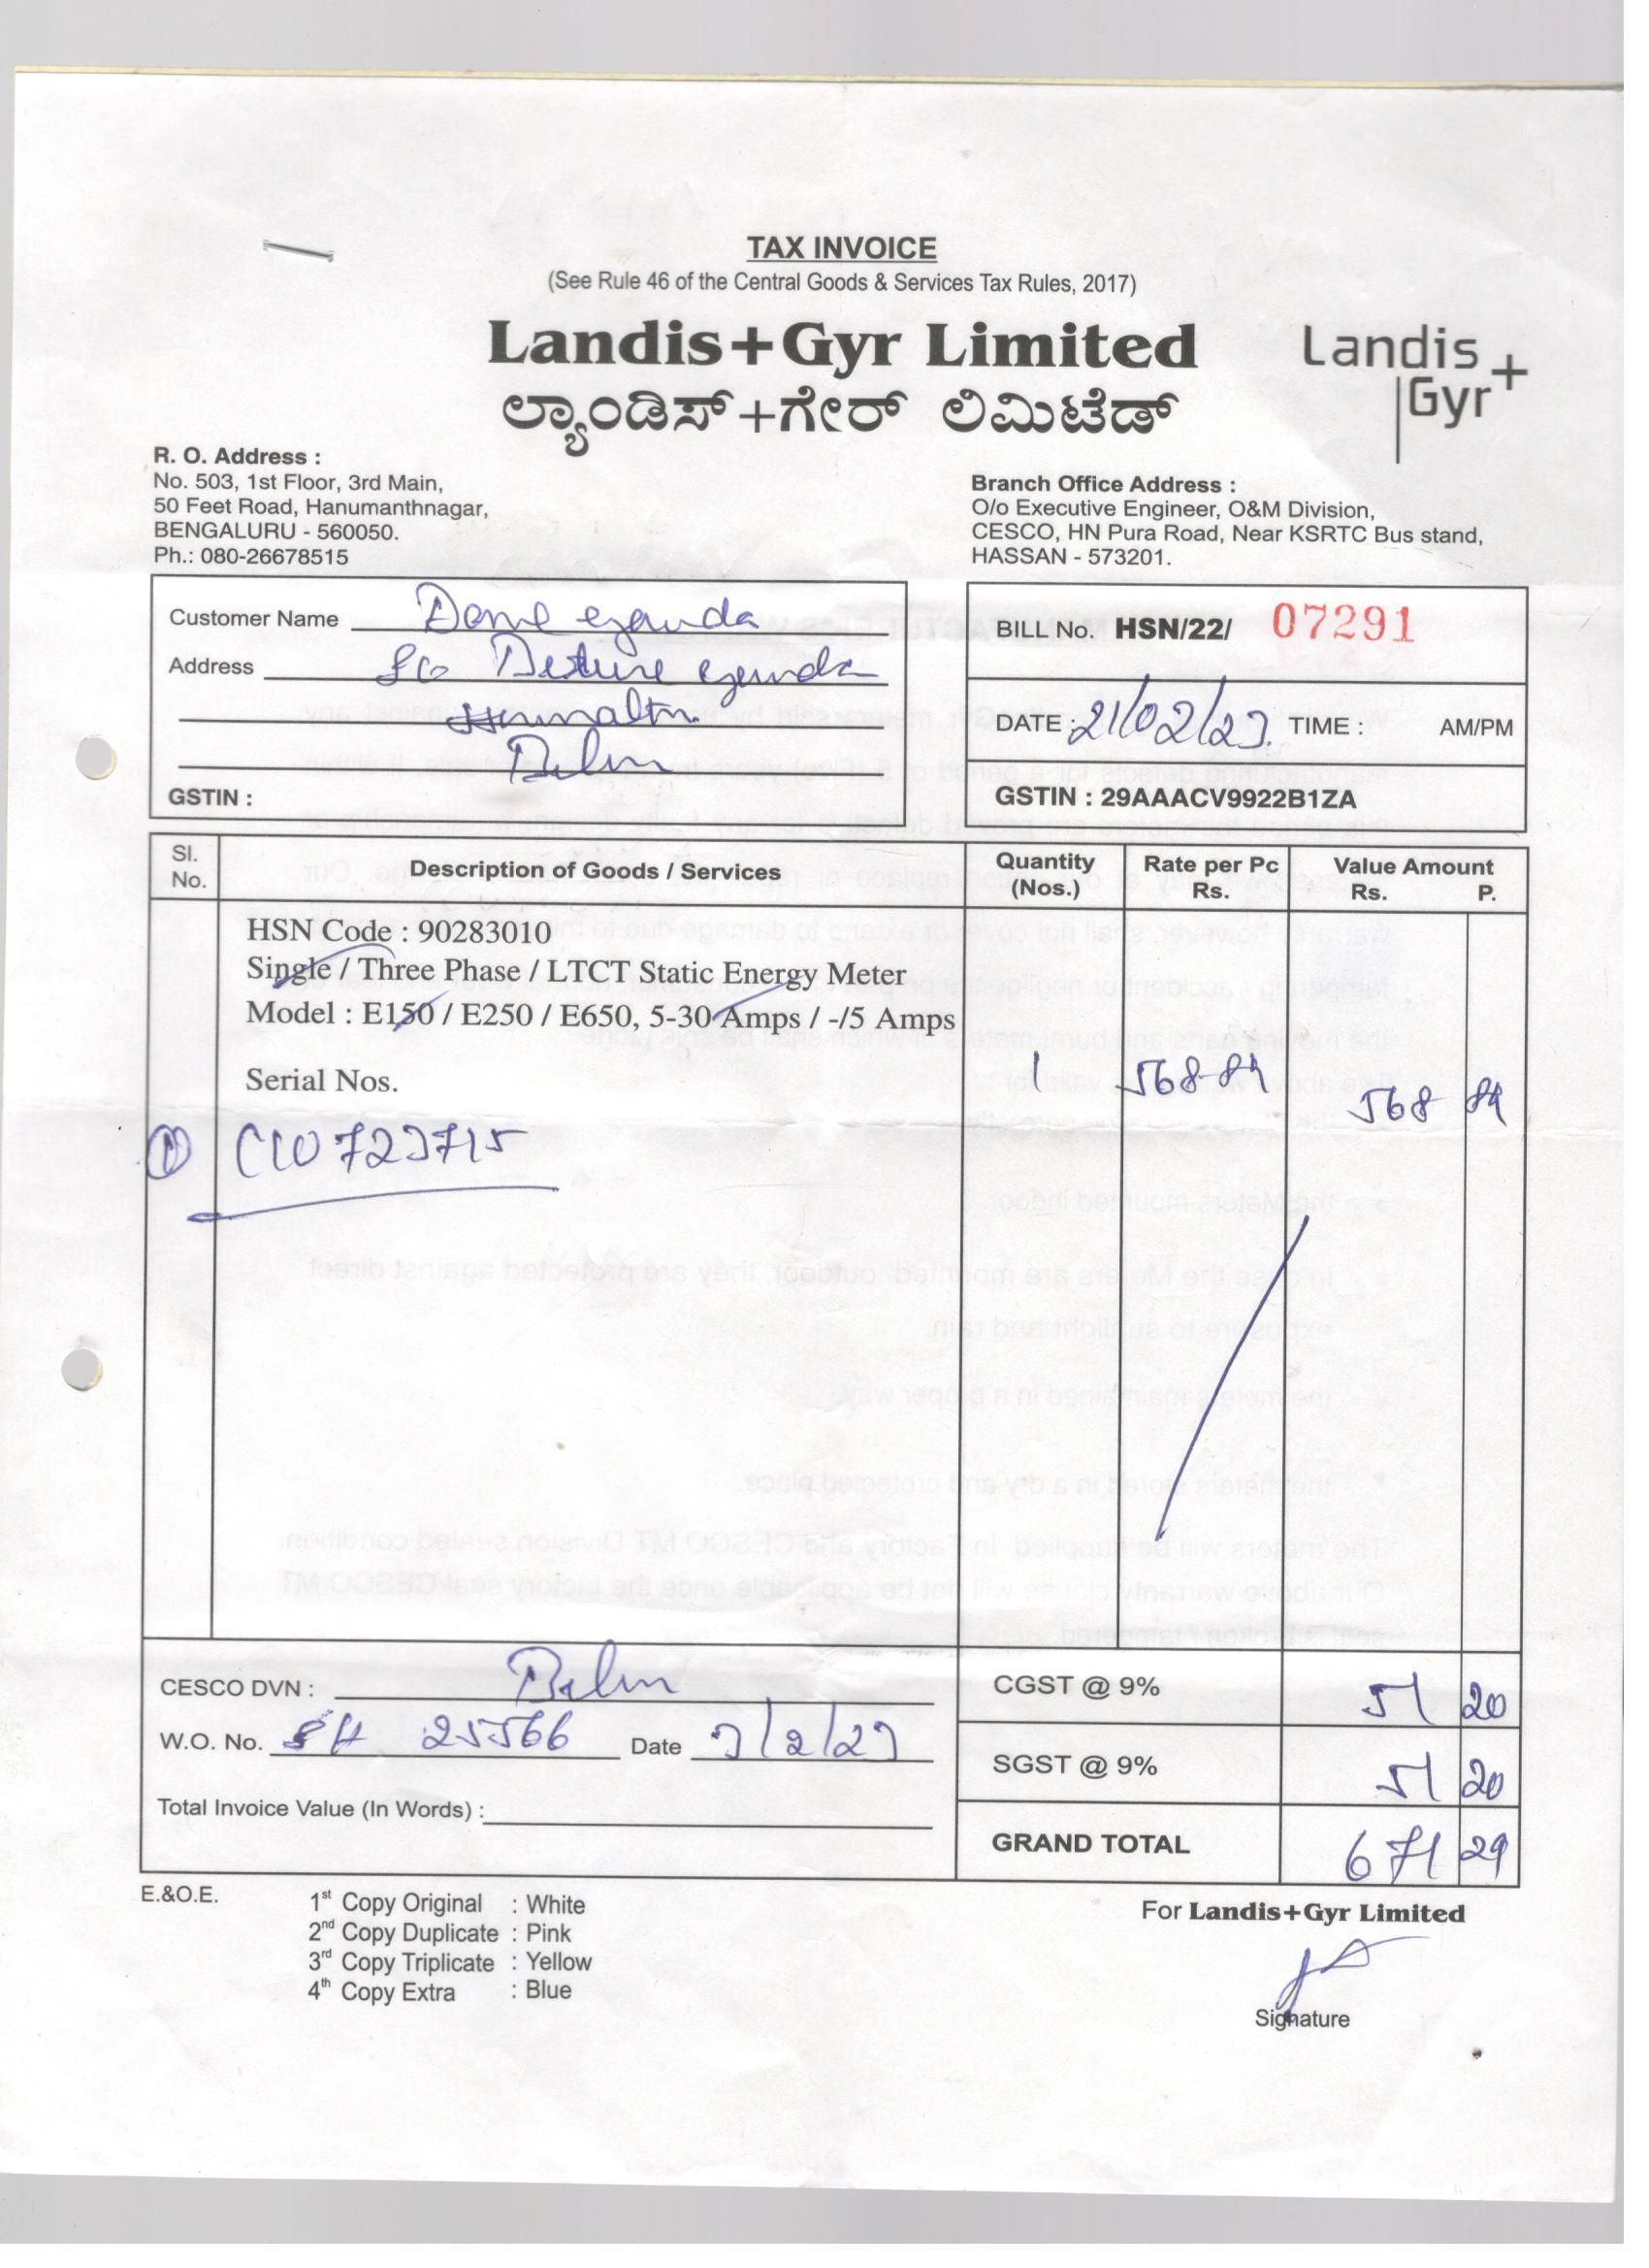 TAX INVOICE
(See Rule 46 of the Central Goods & Services Tax Rules, 2017)
Landis+Gyr Limited
ಲ್ಯಾಂಡಿಸ್+ಗೇರ್ ಲಿಮಿಟೆಡ್
Landis
Gyr+
R. O. Address :
No. 503, 1st Floor, 3rd Main,
50 Feet Road, Hanumanthnagar,
BENGALURU - 560050.
Ph.: 080-26678515
Branch Office Address :
O/o Executive Engineer, O&M Division,
CESCO, HN Pura Road, Near KSRTC Bus stand,
HASSAN - 573201.
Customer Name
Address
GSTIN :
BILL No. HSN/22/ 07291
DATE : 21/02/23. TIME : AM/PM
GSTIN : 29AAACV9922B1ZA
Sl. No. Description of Goods / Services Quantity (Nos.) Rate per Pc Rs. Value Amount Rs. P.
HSN Code : 90283010
Single / Three Phase / LTCT Static Energy Meter
Model : E150 / E250 / E650, 5-30 Amps / -/5 Amps
Serial Nos. 1 568-84 568 84
① 723715
CESCO DVN :
W.O. No. 25566 Date /2/23
Total Invoice Value (In Words) :
CGST @ 9% 51 20
SGST @ 9% 51 20
GRAND TOTAL 671 29
E.&O.E.
1st Copy Original : White
2nd Copy Duplicate : Pink
3rd Copy Triplicate : Yellow
4th Copy Extra : Blue
For Landis+Gyr Limited
Signature